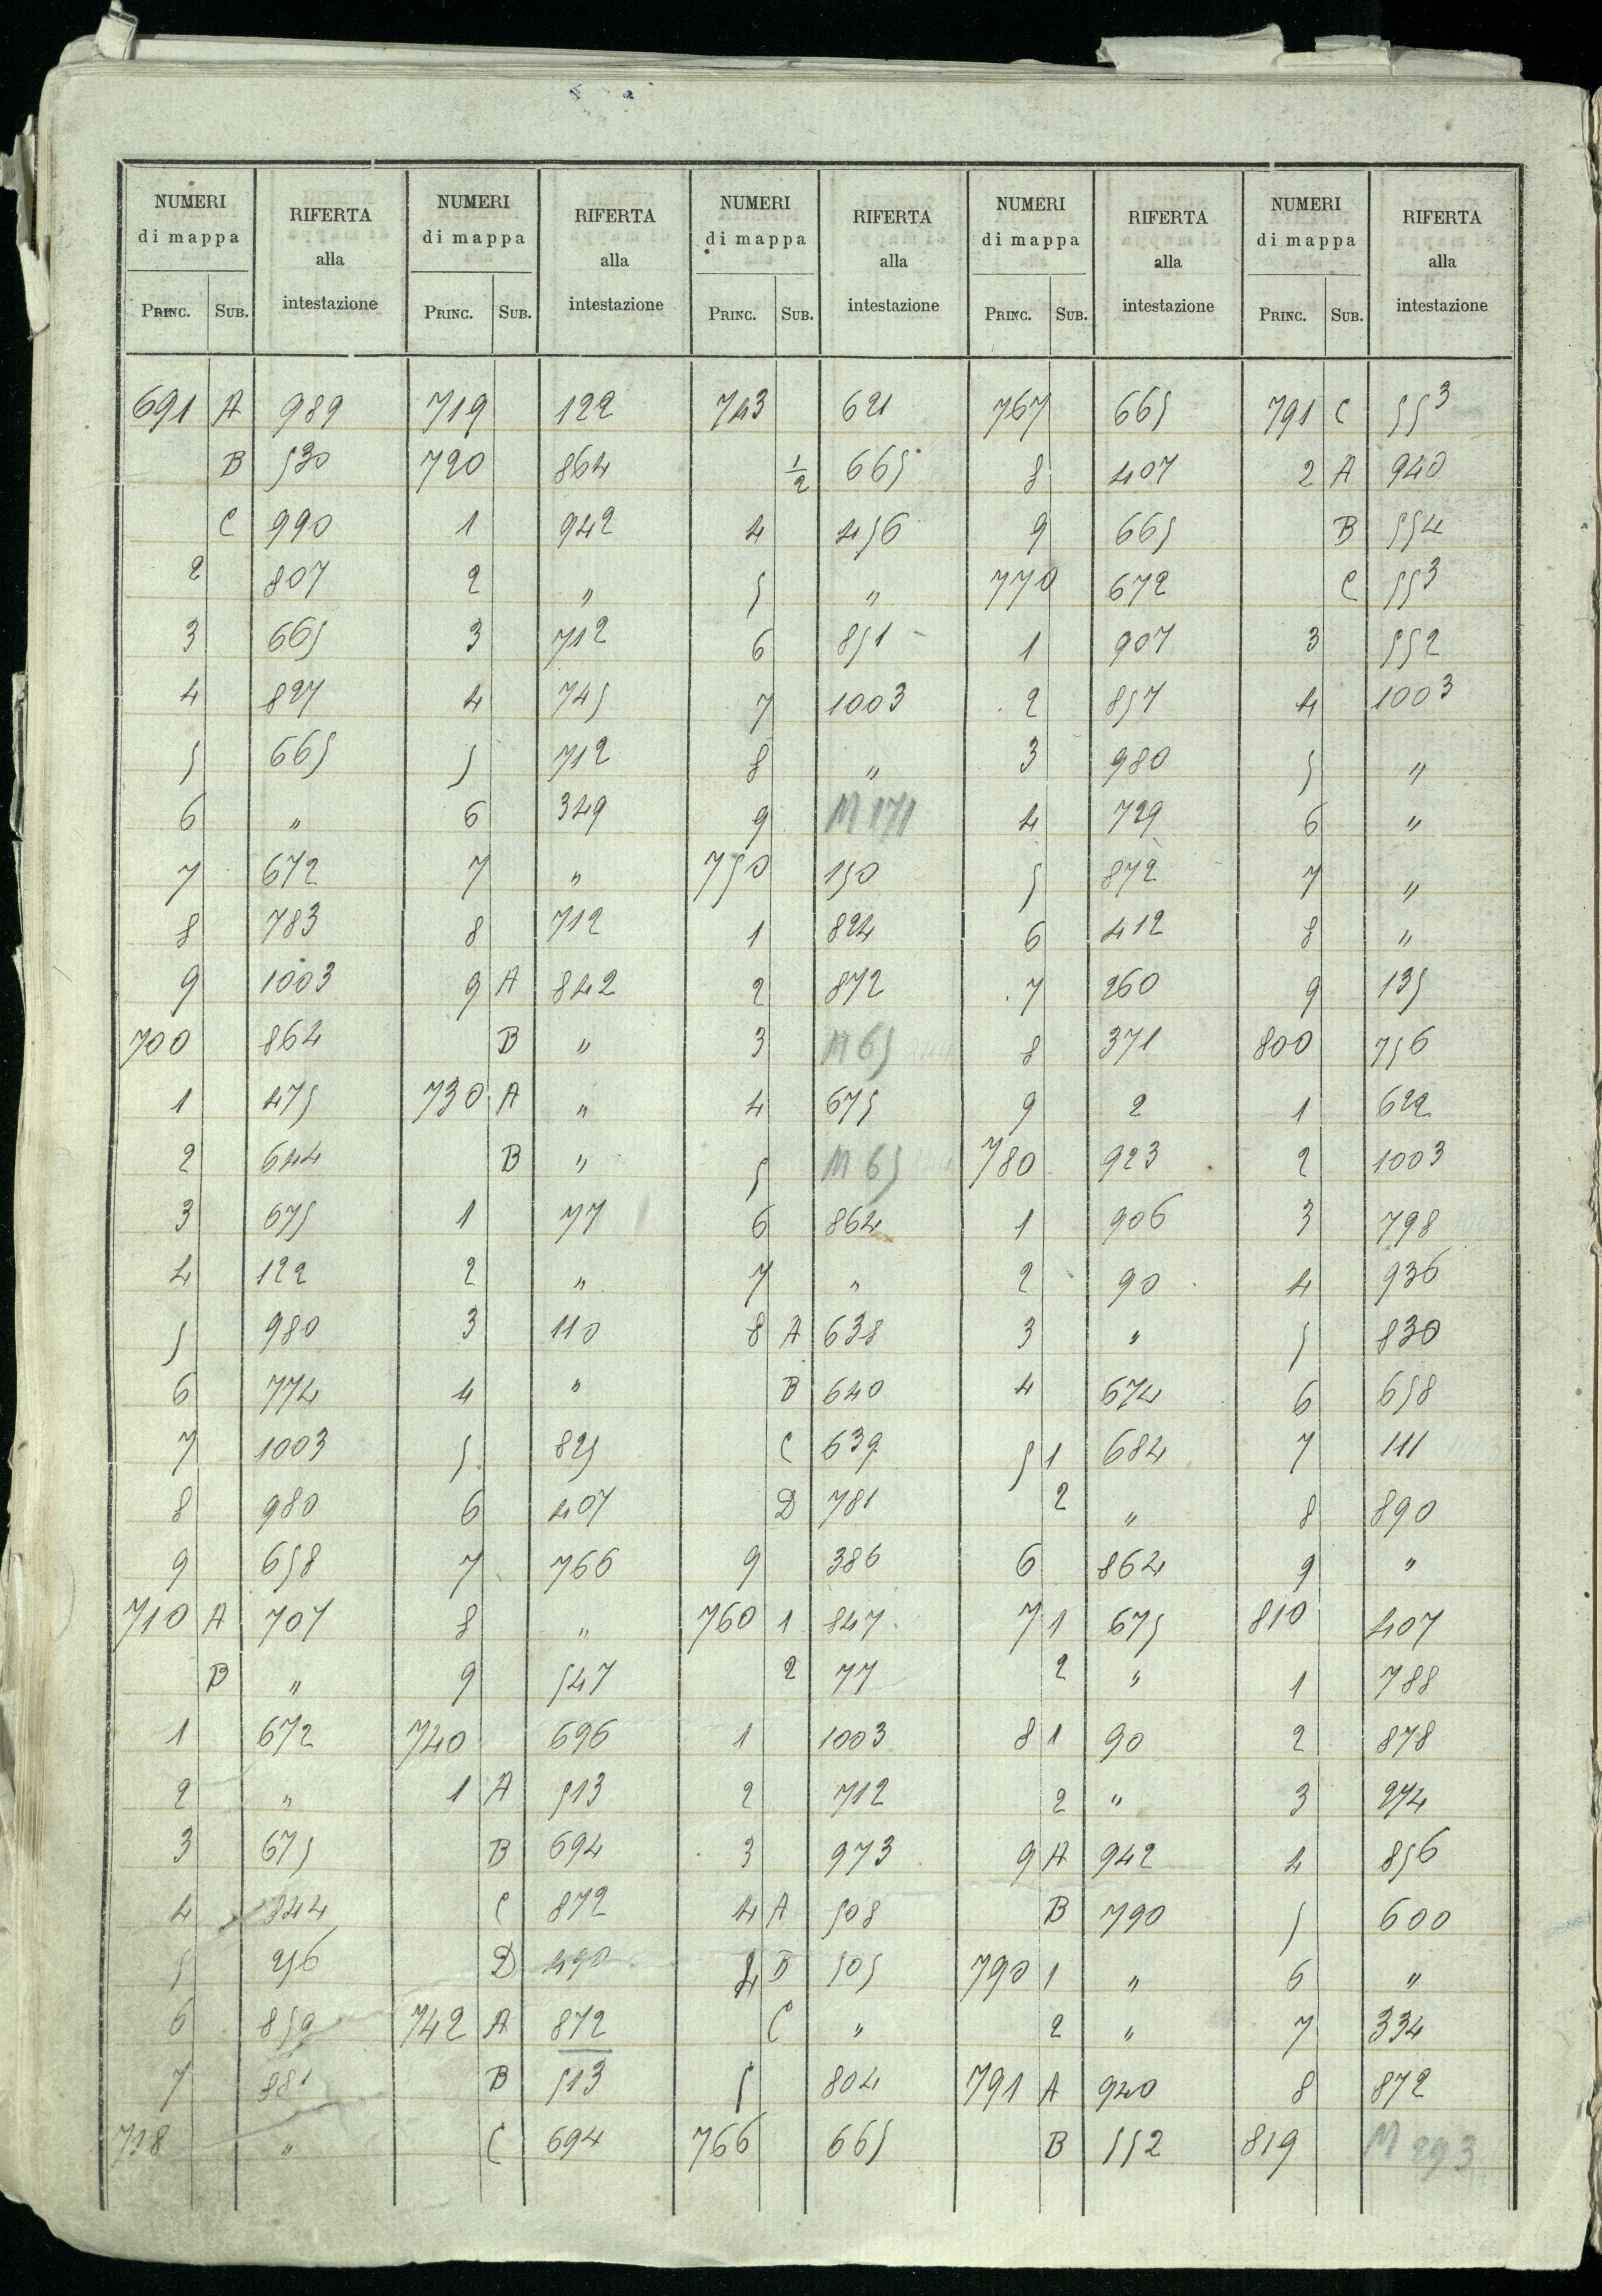 NUMERI di mappa RIFERTA alla intestazione NUMERI di mappa RIFERTA alla intestazione NUMERI di mappa RIFERTA alla intestazione NUMERI di mappa RIFERTA alla intestazione NUMERI di mappa RIFERTA alla intestazione
PRINC. SUB. PRINC. SUB. PRINC. SUB. PRINC. SUB. PRINC. SUB.
691 A 989 719 122 743 621 767 665 791 C 553
B 530 720 864 1/2 665 8 407 2 A 940
C 990 1 942 4 456 9 665 B 554
2 807 2 " 5 " 770 672 C 553
3 665 3 712 6 851 1 907 3 552
4 827 4 745 7 1003 2 857 4 1003
5 665 5 712 8 " 3 980 5 "
6 " 6 349 9 M 171 4 729 6 "
7 672 7 " 750 150 5 872 7 "
8 783 8 712 1 824 6 412 8 "
9 1003 9 A 842 2 872 7 260 9 135
700 864 B " 3 M 65 8 371 800 756
1 475 730 A " 4 675 9 2 1 622
2 644 B " 5 M 65 780 923 2 1003
3 675 1 77 6 864 1 906 3 798
4 122 2 " 7 " 2 90 4 936
5 980 3 110 8 A 638 3 " 5 830
6 774 4 " B 640 4 674 6 658
7 1003 5 825 C 639 5 1 684 7 111
8 980 6 407 D 781 2 " 8 890
9 658 7 766 9 386 6 864 9 "
710 A 707 8 " 760 1 847 7 1 675 810 407
B " 9 547 2 77 2 " 1 788
1 672 740 696 1 1003 8 1 90 2 878
2 " 1 A 513 2 712 2 " 3 274
3 675 B 694 3 973 9 A 942 4 856
4 844 C 872 4 A 508 B 790 5 600
5 256 D 490 4 B 505 790 1 " 6 "
6 859 742 A 872 C " 2 " 7 334
7 881 B 513 5 804 791 A 940 8 872
718 " C 694 766 665 B 552 819 M 293